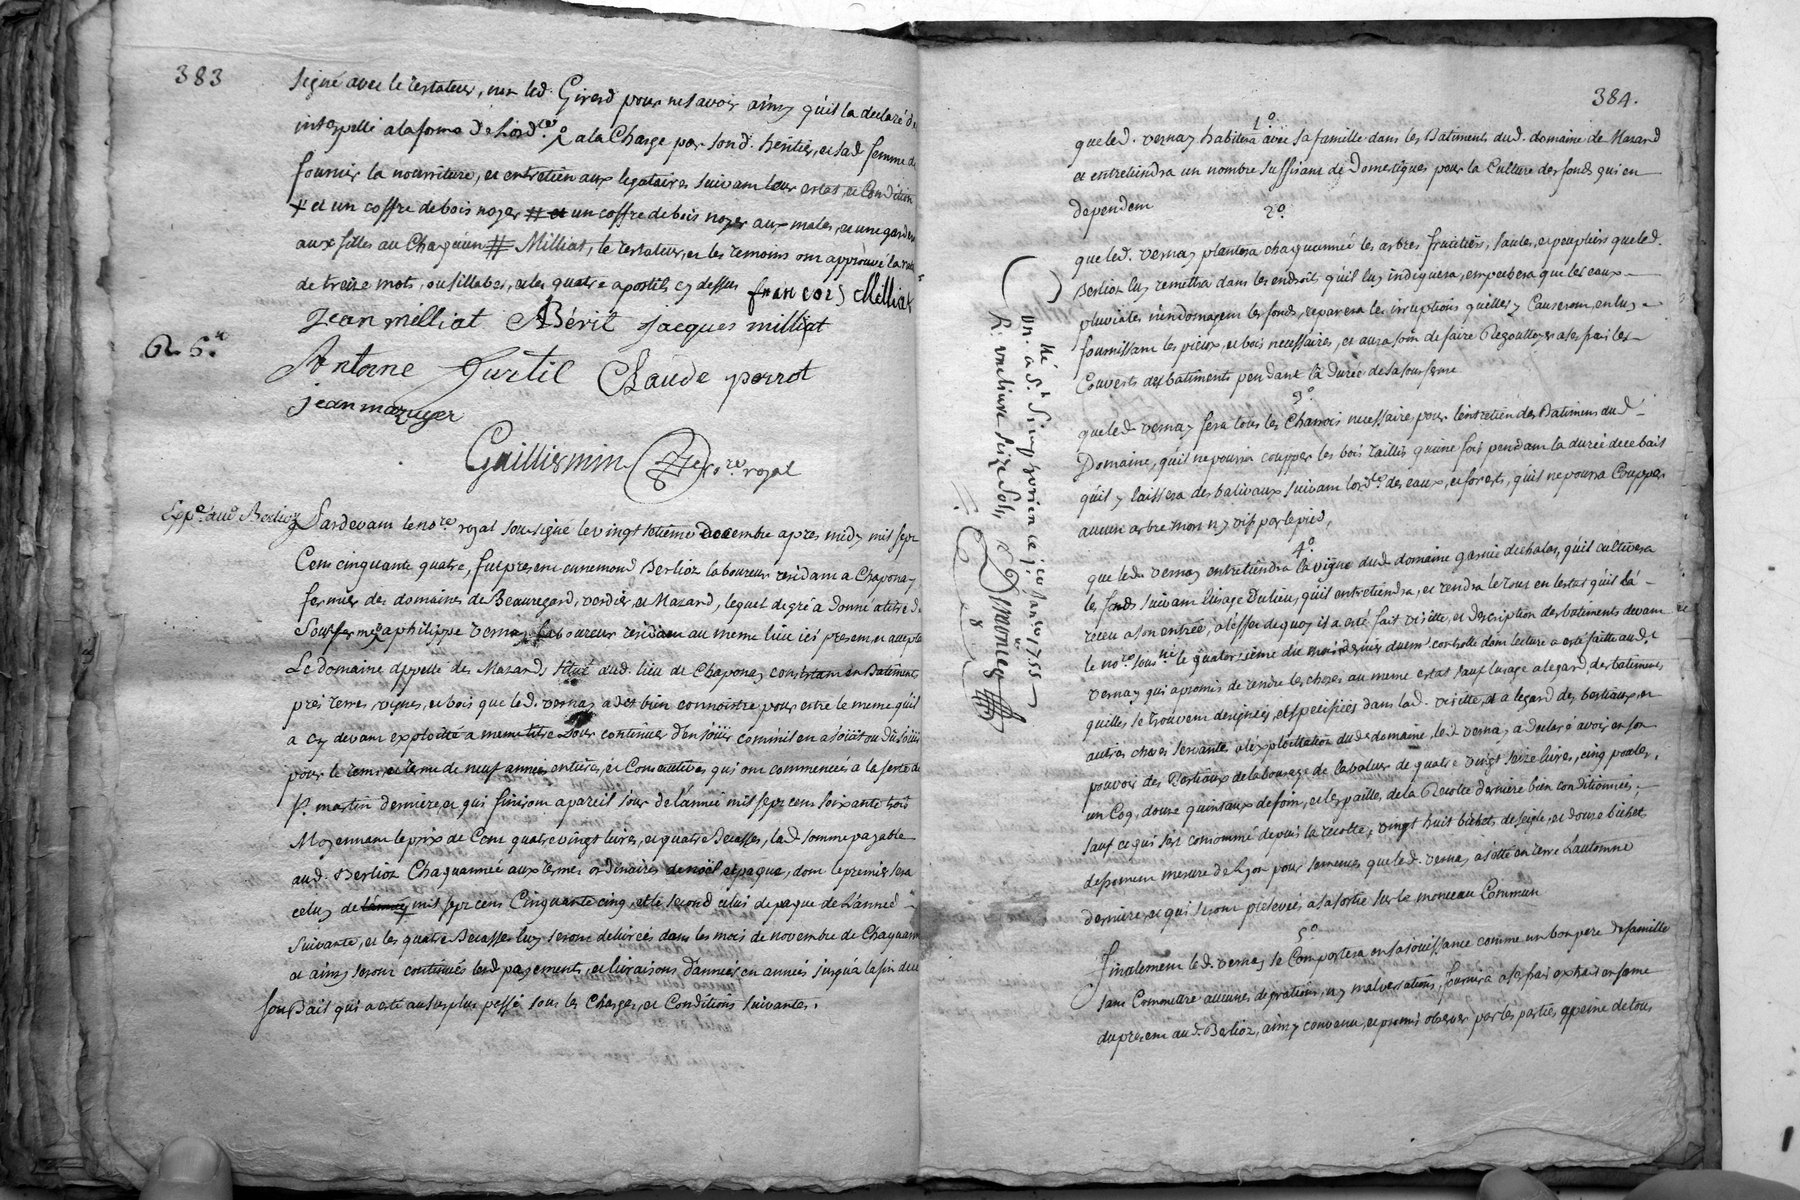 383
signé avec le testateur, non led. Girard pour ne scavoir ainsy quil la declaré de
interpellé a la forme de lord.ce a la Charge par sond. heritier, et sad. femme de
fournir la nourriture, et entretien aux legataires suivant leur estat, et Condition
+ et un coffre de bois noyer # et un coffre de bois noyer aux males, et une garderobe
aux filles au Chaquun # Milliat, le testateur, et les temoins ont approuvé la
de treize mots, ou sillabes, et les quatre apostiles cy dessus françois Milliat
Jean milliat ABéril jacques milliat
R. 6.
Antoine Gurtil Claude perrot
jean mazuyer
Guillermin no.re royal
Exp.é aud. Berlioz
Pardevant le no.re royal soussigné le vingt decembre apres midy mil sept
Cent cinquante quatre, fut present ennemond Berlioz laboureur residant a Chaponay
fermier des domaines de Beauregard, verdier, et Mazard, lequel de gré a donné a titre de
Sousferme a philippe vernay laboureur residant au meme lieu ici present, et acceptant
Le domaine appellé de Mazard, situé aud. lieu de Chaponay consistant en Batiments
prés terres, vignes, et bois que led. vernay a dit bien connoistre pour estre le meme quil
a cy devant exploitté a meme titre pour continuer d'en jouir comm'il en a jouit ou du jouir
pour le tems, et terme de neuf années entieres, et Consecutives qui ont commencée a la feste de
St. martin derniere, et qui finiront a pareil jour de l'année mil sept cent soixante trois
Moyennant le prix de Cent quatre vingt livres, et quatre Becasses, lad. somme payable
aud. Berlioz Chaquannée aux termes ordinaires de noël et paque, dont le premier sera
celuy de mil sept cent Cinquante cinq, et le second celui de paque de L'année
suivante, et les quatre Becasses luy seront delivrées dans les mois de novembre de Chaquannée
et ainsy seront continués lesd. payements, et livraisons d'années en années jusqu'a la fin du
sou Bail qui a été au surplus passé sous les Charges, et Conditions suivantes.
384.
1.o
que led. vernay habitera avec sa famille dans les Batiments dud. domaine de Mazard
et entretiendra un nombre suffisant de Domestiques pour la Culture des fonds qui en
dependent
2.o
que led. vernay plantera chaquannée les arbres fruitiers, saules, et peupliers que led.
Berlioz luy remettra dans les endroits qu'il luy indiquera, empechera que les eaux
pluviales n'endomagent les fonds, reparera les irruptions qu'elles y causeront, en luy
fournissant les pieux, et bois necessaires, et aura soin de faire Regouttoyer a ses frais les
Couverts des batiments pendant la durée de sa sousferme
3.o
que led. vernay fera tous les Charrois necessaire pour l'entretien des Batimens dud.
Domaine, quil ne pourra coupper les bois taillis qu'une fois pendant la durée de ce bail
qu'il y laissera des balivaux suivant lord.ce des eaux, et forests, qu'il ne pourra Coupper
aucun arbre mort ny vif par le pied,
4.o
que led. vernay entretiendra la vigne dud. domaine garnie dechalas, qu'il cultivera
les fonds suivant l'usage Du lieu, qu'il entretiendra, et rendra le tout en l'estat qu'il l'a
receu a son entrée, a l'effet de quoy il a eté fait visitte, et description des batiments devant
le no.re sous.né le quatorzieme du mois dernier duem.t controllé dont lecture a esté faitte aud.
vernay qui a promis de rendre les choses au meme estat sauf l'usage a l'egard des batiments
qu'elles se trouvent designées, et specifiées dans lad. visitte, et a l'egard des bestiaux, et
autres choses servantes a l'exploittation dud. domaine, led. vernay a declaré avoir en son
pouvoir des Bestiaux de labourage de la valeur de quatre vingt seize livres, cinq poules,
un Coq, douze quintaux de foin, et les pailles de la Recolte derniere bien conditionnées,
sauf ce qui s'est consommé depuis la recolte, vingt huit bichets de seigle, et douze bichets
de froment mesure de Lyon pour semences que led. vernay a jetté en terre l'automne
derniere, et qui seront prelevées a sa sortie sur le monceau Commun
5.o
Finalement led. vernay se Comportera en sa jouissance comme un bon pere de famille
sans Commettre aucunes degrations, ny malversations, fournira a ses frais extrait en forme
du present aud. Berlioz, ainsy convenu, et promis observer par les parties a peine de tous
né
Con. a St. Simphorien ce jan.er 1755
R. une livre seize sols
Dimonier